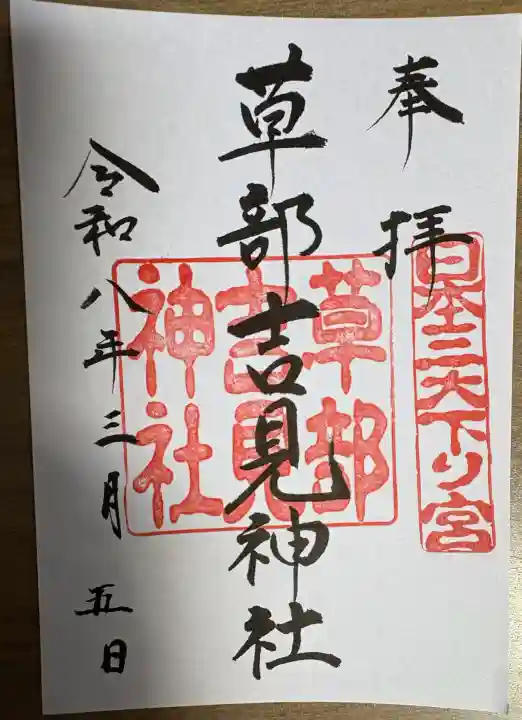 奉拝
日本三大下り宮
草部吉見神社
草部
吉見
神社
令和八年三月五日